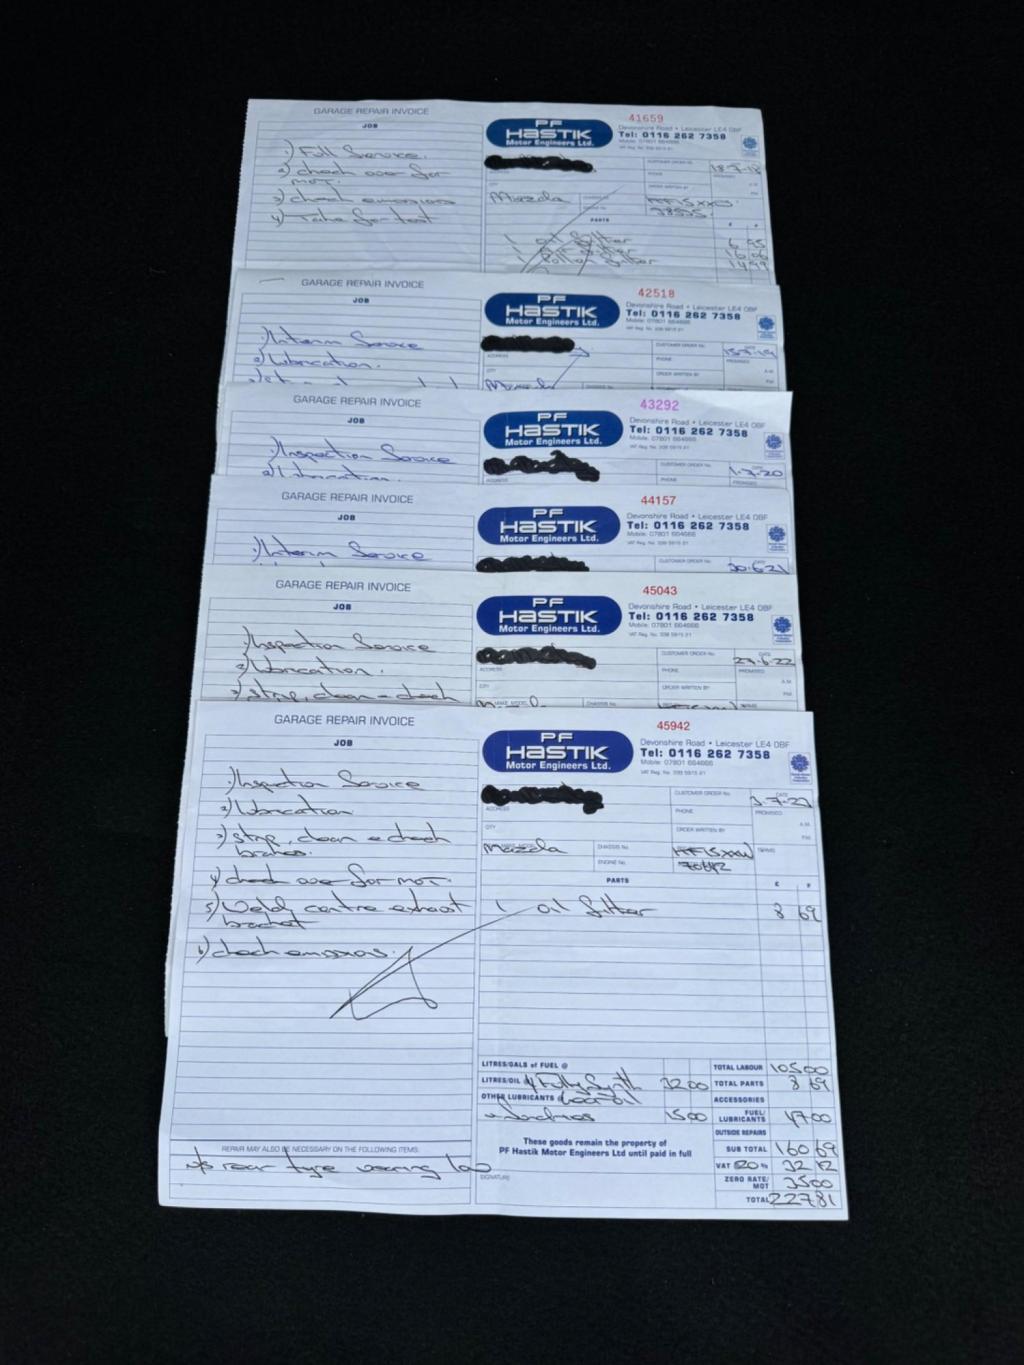 GARAGE REPAIR INVOICE
JOB
1) Full Service.
2) check over for
MOT.
3) check emissions
4) Take for test
PF
HASTIK
Motor Engineers Ltd.
41659
Devonshire Road • Leicester LE4 0BF
Tel: 0116 262 7358
Mobile: 07801 664666
CUSTOMER ORDER No.
PHONE
PROMISED
A.M.
P.M.
CITY
ORDER WRITTEN BY
Mazda
PARTS
£ P
1 oil filter 6 95
1 Pollen filter 14 99
GARAGE REPAIR INVOICE
JOB
1) Interim Service
2) Lubrication.
PF
HASTIK
Motor Engineers Ltd.
42518
Devonshire Road • Leicester LE4 0BF
Tel: 0116 262 7358
Mobile: 07801 664666
CUSTOMER ORDER No.
DATE
ADDRESS
PHONE
PROMISED
A.M.
CITY
ORDER WRITTEN BY
P.M.
Mazda
GARAGE REPAIR INVOICE
JOB
1) Inspection Service
2) Lubrication.
PF
HASTIK
Motor Engineers Ltd.
43292
Devonshire Road • Leicester LE4 0BF
Tel: 0116 262 7358
Mobile: 07801 664666
CUSTOMER ORDER No.
DATE
1.7.20
ADDRESS
PHONE
PROMISED
GARAGE REPAIR INVOICE
JOB
1) Interim Service
PF
HASTIK
Motor Engineers Ltd.
44157
Devonshire Road • Leicester LE4 0BF
Tel: 0116 262 7358
Mobile: 07801 664666
CUSTOMER ORDER No.
30.6.21
GARAGE REPAIR INVOICE
JOB
1) Inspection Service
2) Lubrication.
3) strip, clean & check
PF
HASTIK
Motor Engineers Ltd.
45043
Devonshire Road • Leicester LE4 0BF
Tel: 0116 262 7358
Mobile: 07801 664666
CUSTOMER ORDER No.
DATE
27.6.22
ADDRESS
PHONE
PROMISED
A.M.
CITY
ORDER WRITTEN BY
P.M.
MAKE MODEL
CHASSIS No.
TERMS
GARAGE REPAIR INVOICE
JOB
1) Inspection Service
2) Lubrication
3) strip, clean & check
brakes.
4) check over for MOT.
5) Weld centre exhaust
bracket
6) check emissions.
PF
HASTIK
Motor Engineers Ltd.
45942
Devonshire Road • Leicester LE4 0BF
Tel: 0116 262 7358
Mobile: 07801 664666
CUSTOMER ORDER No.
DATE
3.7.23
ADDRESS
PHONE
PROMISED
A.M.
CITY
ORDER WRITTEN BY
P.M.
Mazda
CHASSIS No.
TERMS
ENGINE No.
PARTS
£ P
1 oil filter 8 69
LITRES/GALS of FUEL @
TOTAL LABOUR 105 00
LITRES/OIL 4 Fully Synth 32 00
TOTAL PARTS 8 69
OTHER LUBRICANTS @
ACCESSORIES
15 00
FUEL/
LUBRICANTS 47 00
OUTSIDE REPAIRS
These goods remain the property of
PF Hastik Motor Engineers Ltd until paid in full
SUB TOTAL 160 69
VAT 20 % 32 12
ZERO RATE/
MOT 35 00
TOTAL 227 81
SIGNATURE
REPAIR MAY ALSO BE NECESSARY ON THE FOLLOWING ITEMS:
n/s rear tyre wearing low